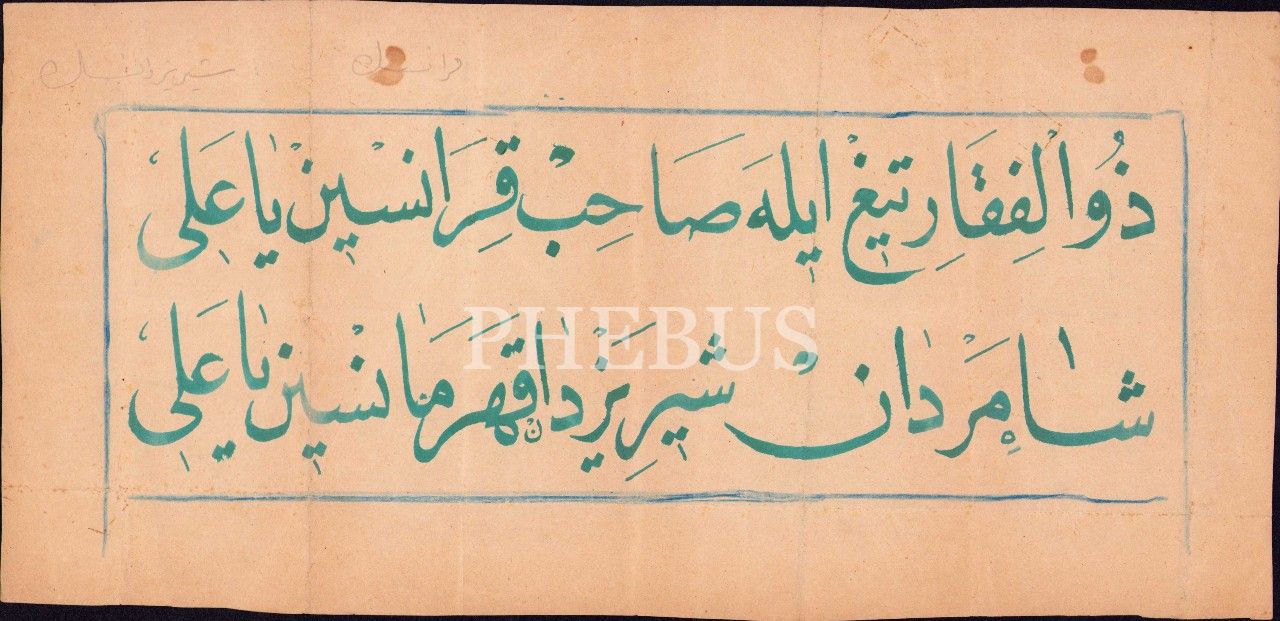 ذُوالْفِقَارِ تيغْ ايلهَ صَاحِبْ قِرَانْسِينْ يا عَلِى
شاهِ مَرْدَانْ شيرِ يَزْدَانْ قَهَرمَانْسِينْ يا عَلِى
PHEBUS